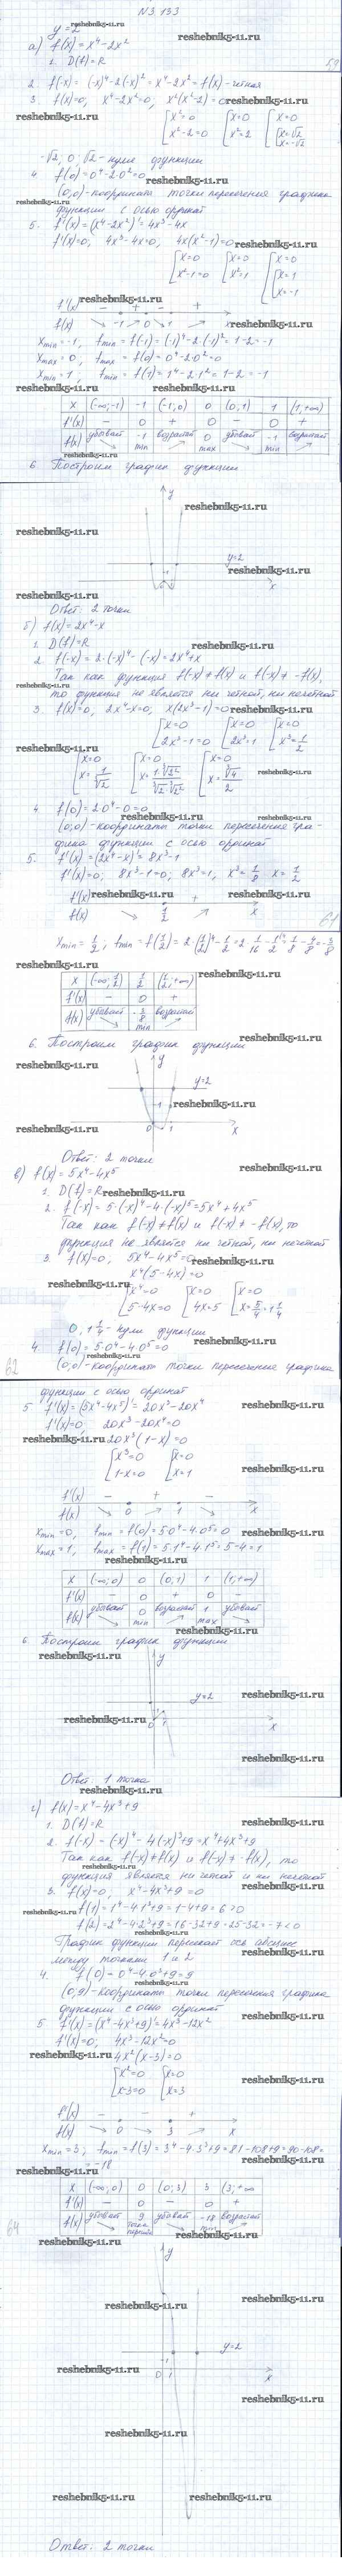 N 3.133
y=2
а) f(x) = x⁴ - 2x²
1. D(f)=R
59
2. f(-x) = (-x)⁴-2(-x)² = x⁴-2x² = f(x) - четная
3. f(x)=0, x⁴-2x²=0, x²(x²-2)=0
[x²=0 [x=0 [x=0
[x²-2=0 [x²=2 [x=√2
[x=-√2
-√2, 0, √2 - нули функции
4. f(0)=0⁴-2·0²=0
(0;0)-координаты точки пересечения графика
функции с осью ординат
5. f'(x) = (x⁴-2x²)' = 4x³-4x
f'(x)=0, 4x³-4x=0, 4x(x²-1)=0
[x=0 [x=0 [x=0
[x²-1=0 [x²=1 [x=1
[x=-1
f'(x) - + - +
f(x) -1 0 1 x
xmin=-1, fmin=f(-1)=(-1)⁴-2·(-1)²=1-2=-1
xmax=0, fmax=f(0)=0⁴-2·0²=0
xmin=1, fmin=f(1)=1⁴-2·1²=1-2=-1
x (-∞;-1) -1 (-1;0) 0 (0;1) 1 (1;+∞)
f'(x) - 0 + 0 0 +
f(x) убывает -1 min возрастает 0 max убывает -1 min возрастает
6. Построим график функции
y
y=2
1
x
Ответ: 2 точки
б) f(x)=2x⁴-x
1. D(f)=R
2. f(-x)=2·(-x)⁴-(-x)=2x⁴+x
Так как функция f(-x)≠f(x) и f(-x)≠-f(x),
то функция не является ни четной, ни нечетной
3. f(x)=0, 2x⁴-x=0, x(2x³-1)=0
[x=0 [x=0 [x=0
[2x³-1=0 [2x³=1 [x³=1/2
[x=0 [x=0 [x=0
[x=1/∛2 [x=1·∛2²/∛2·∛2² [x=∛4/2
4. f(0)=2·0⁴-0=0
(0;0)-координаты точки пересечения гра-
фика функции с осью ординат
5. f'(x)=(2x⁴-x)'=8x³-1
f'(x)=0; 8x³-1=0, 8x³=1, x³=1/8 x=1/2
f'(x) - +
f(x) 1/2 x
61
xmin=1/2, fmin=f(1/2)=2·(1/2)⁴-1/2=2·1/16-1/2=1/8-4/8=-3/8
x (-∞;1/2) 1/2 (1/2;+∞)
f'(x) - 0 +
f(x) убывает -3/8 min возрастает
6. Построим график функции
y
y=2
1
0 1 x
Ответ: 2 точки
в) f(x)=5x⁴-4x⁵
1. D(f)=R
2. f(-x)=5·(-x)⁴-4·(-x)⁵=5x⁴+4x⁵
Так как f(-x)≠f(x) и f(-x)≠-f(x), то
функция не является ни четной, ни нечетной
3. f(x)=0, 5x⁴-4x⁵=0
x⁴(5-4x)=0
[x⁴=0 [x=0 [x=0
[5-4x=0 [4x=5 [x=5/4=1 1/4
0, 1 1/4 - нули функции
4. f(0)=5·0⁴-4·0⁵=0
62
(0;0)-координаты точки пересечения графика
функции с осью ординат
5 f'(x)=(5x⁴-4x⁵)'=20x³-20x⁴
f'(x)=0 20x³-20x⁴=0
20x³(1-x)=0
[x³=0 [x=0
[1-x=0 [x=1
f'(x) - + -
f(x) 0 1 x
xmin=0, fmin=f(0)=5·0⁴-4·0⁵=0
xmax=1, fmax=f(1)=5·1⁴-4·1⁵=5-4=1
x (-∞;0) 0 (0;1) 1 (1;+∞)
f'(x) - 0 + 0 -
f(x) убывает 0 min возрастает 1 max убывает
6 Построим график функции
y
y=2
0 1 x
Ответ: 1 точка
г) f(x)=x⁴-4x³+9
1. D(f)=R
2. f(-x)=(-x)⁴-4(-x)³+9=x⁴+4x³+9
Так как f(-x)≠f(x) и f(-x)≠-f(x), то
функция является ни четной и ни нечетной
3. f(x)=0, x⁴-4x³+9=0
f(1)=1⁴-4·1³+9=1-4+9=6>0
f(2)=2⁴-4·2³+9=16-32+9=25-32=-7<0
График функции пересекает ось абсцисс
между точками 1 и 2
4. f(0)=0⁴-4·0³+9=9
(0;9)-координаты точки пересечения графика
функции с осью ординат
5. f'(x)=(x⁴-4x³+9)'=4x³-12x²
f'(x)=0; 4x³-12x²=0
4x²(x-3)=0
[x²=0 [x=0
[x-3=0 [x=3
f'(x) - - +
f(x) 0 3 x
xmin=3; fmin=f(3)=3⁴-4·3³+9=81-108+9=90-108=
=-18
x (-∞;0) 0 (0;3) 3 (3;+∞
f'(x) - 0 - 0 +
64
f(x) убывает 9 точка перегиба убывает -18 min возрастает
y
y=2
1
0 1 x
Ответ: 2 точки
reshebnik5-11.ru